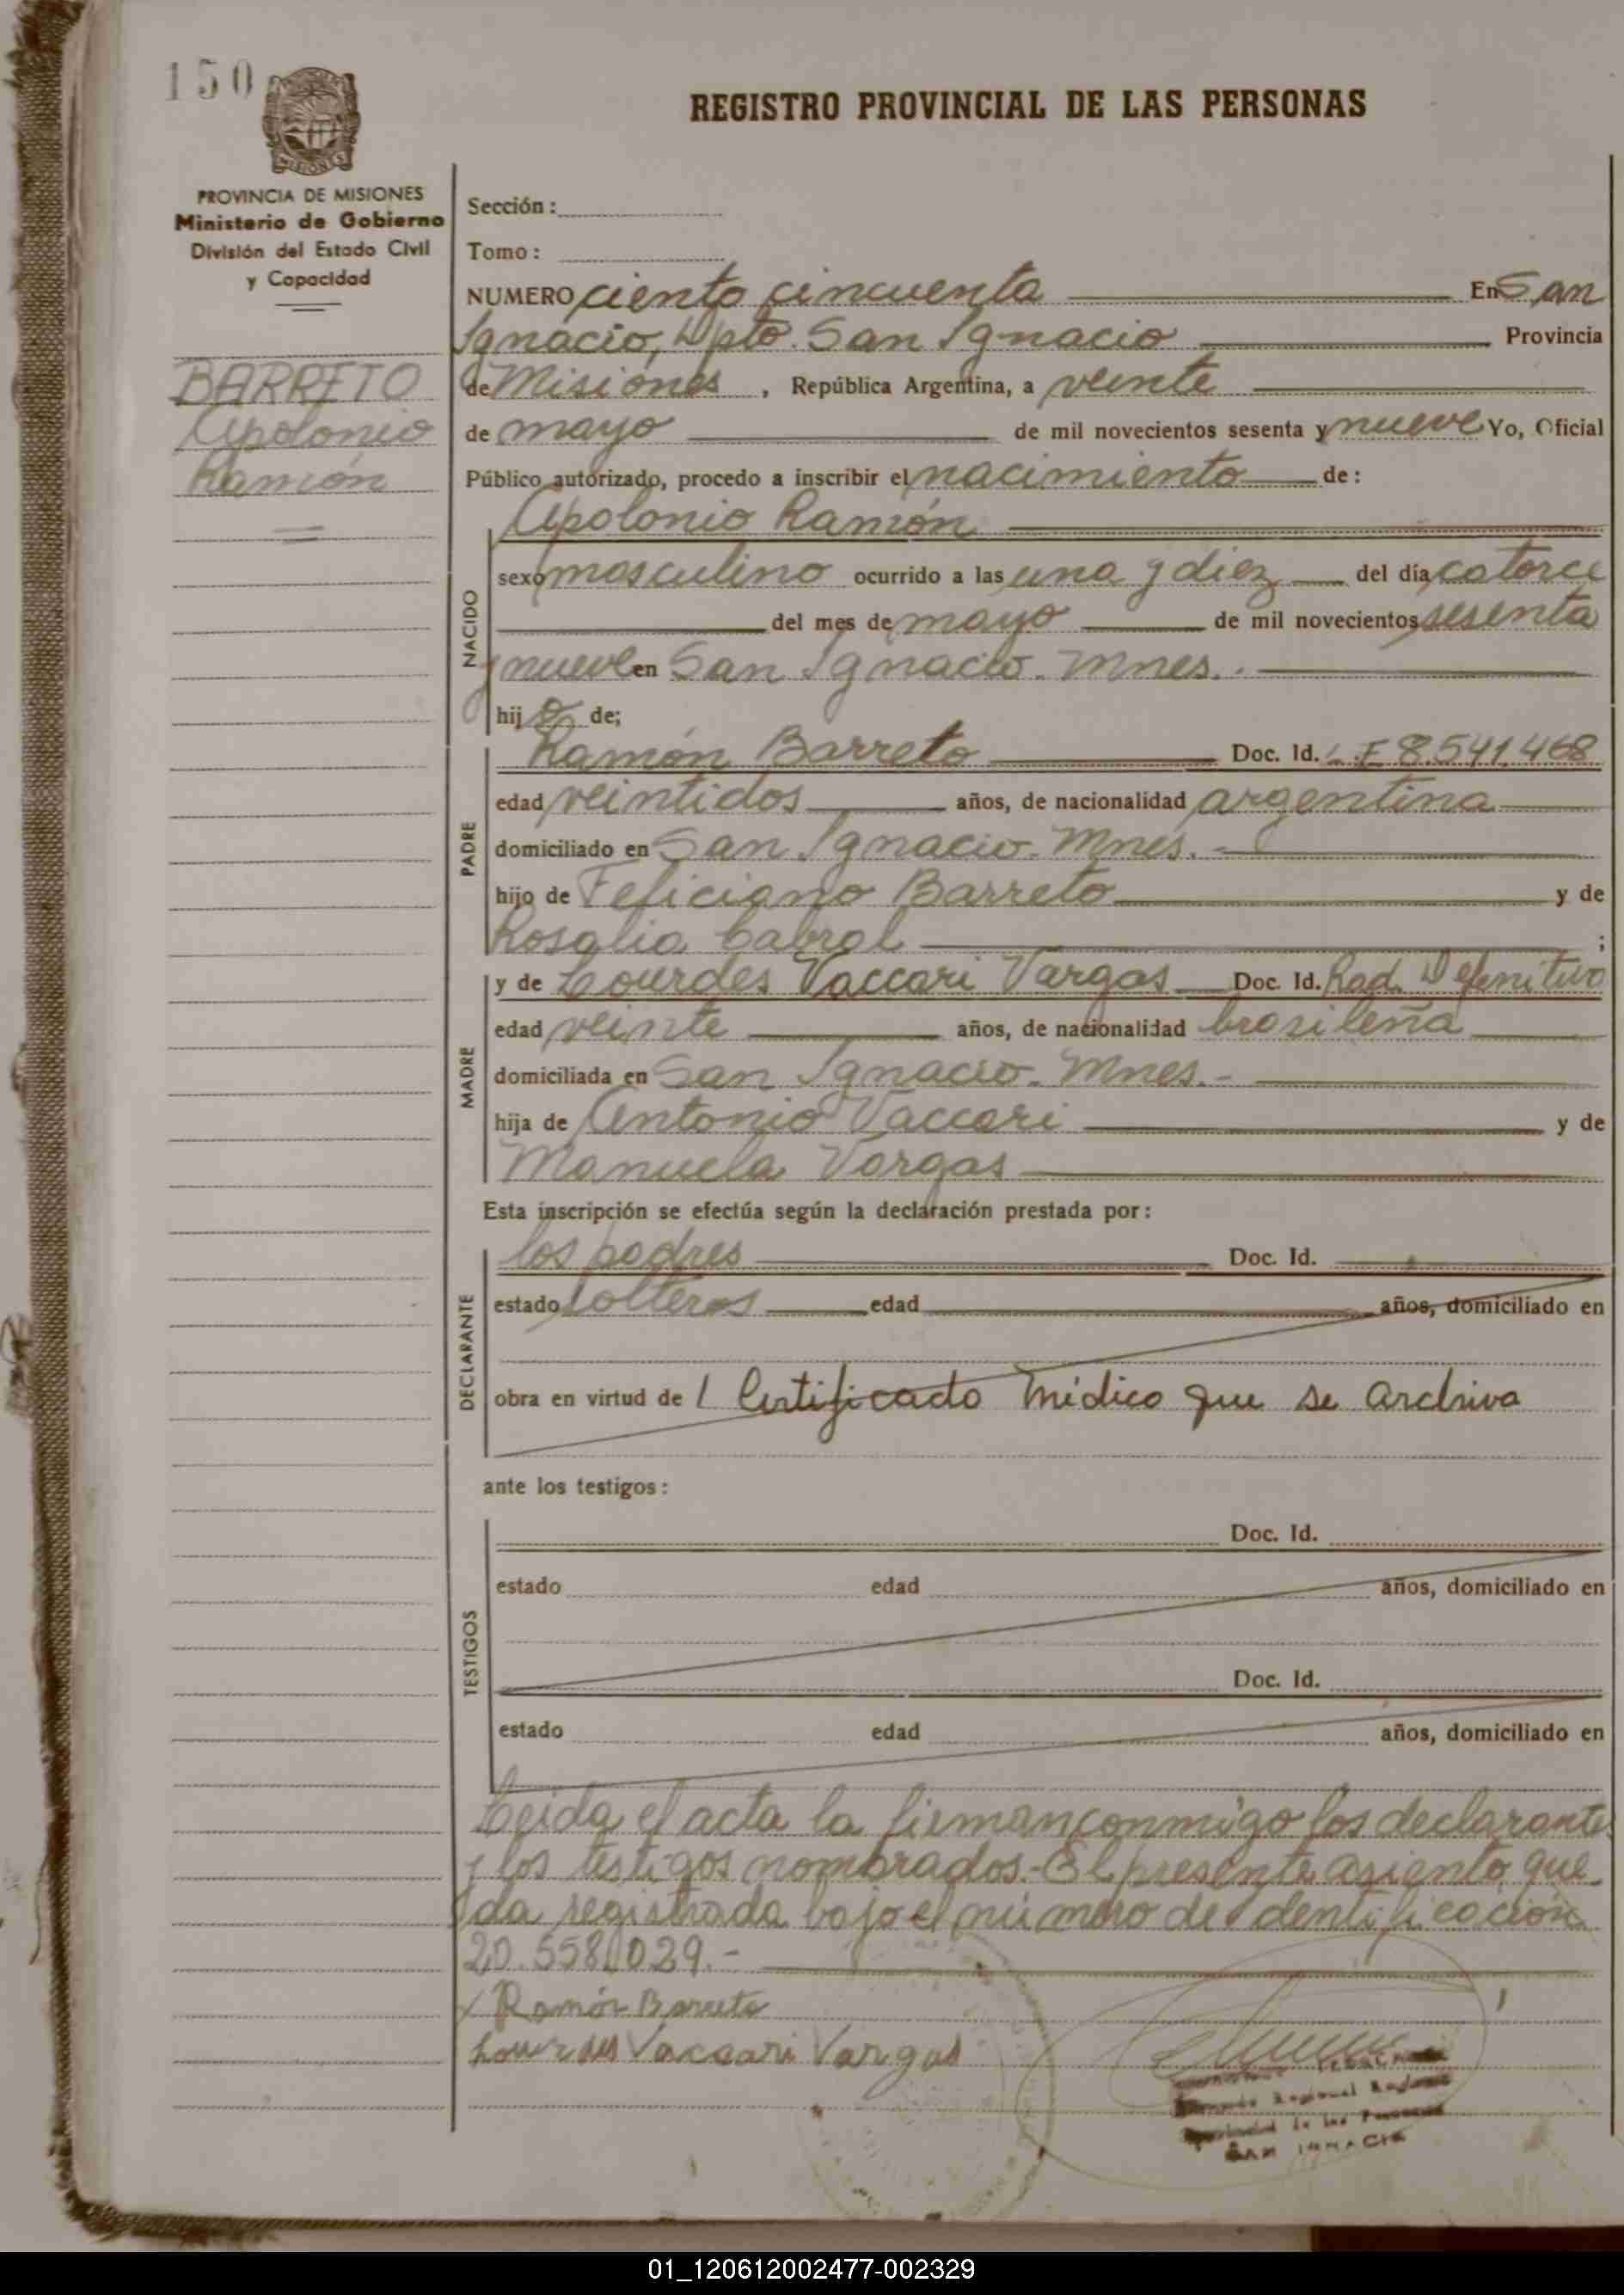 150
REGISTRO PROVINCIAL DE LAS PERSONAS
MISIONES
PROVINCIA DE MISIONES
Ministerio de Gobierno
División del Estado Civil
y Capacidad
BARRETO
Apolonio
Ramón
Sección:
Tomo:
NUMERO ciento cincuenta En San
Ignacio, Dpto. San Ignacio Provincia
de Misiones, República Argentina, a veinte
de mayo de mil novecientos sesenta y nueve Yo, Oficial
Público autorizado, procedo a inscribir el nacimiento de:
Apolonio Ramón
NACIDO
sexo masculino ocurrido a las una y diez del día catorce
del mes de mayo de mil novecientos sesenta
y nueve en San Ignacio. Mnes.
hijo de;
PADRE
Ramón Barreto Doc. Id. L.E 8.541.468
edad veintidos años, de nacionalidad argentina
domiciliado en San Ignacio. Mnes.-
hijo de Feliciano Barreto y de
Rosalia Cabral ;
MADRE
y de Lourdes Vaccari Vargas Doc. Id. Rad. Definitivo
edad veinte años, de nacionalidad brasileña
domiciliada en San Ignacio. Mnes.-
hija de Antonio Vaccari y de
Manuela Vargas
Esta inscripción se efectúa según la declaración prestada por:
DECLARANTE
los padres Doc. Id.
estado solteros edad años, domiciliado en
obra en virtud de 1 Certificado Médico que se archiva
ante los testigos:
TESTIGOS
Doc. Id.
estado edad años, domiciliado en
Doc. Id.
estado edad años, domiciliado en
Leida el acta la firman conmigo los declarantes
y los testigos nombrados.- El presente asiento que
da registrada bajo el número de identificación
20.558.029.-
Ramón Barreto
Lourdes Vaccari Vargas
SAN IGNACIO
01_120612002477-002329